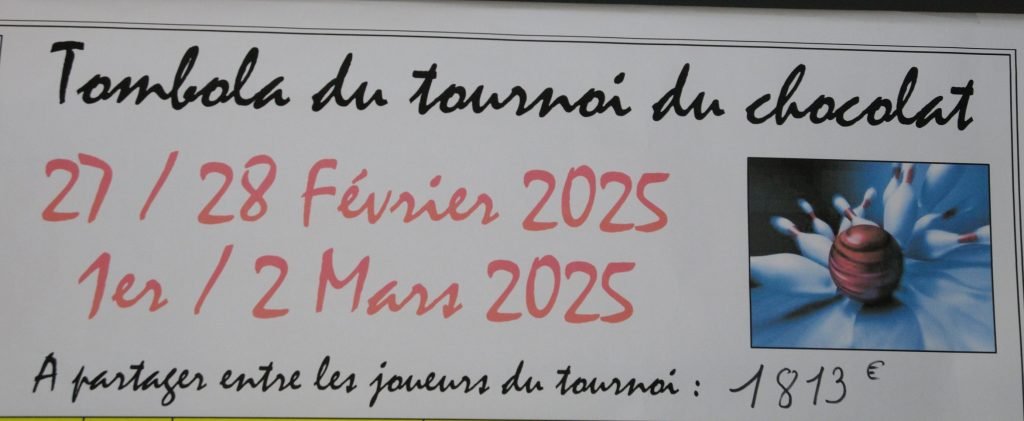 Tombola du tournoi du chocolat
27 / 28 Février 2025
1er / 2 Mars 2025
A partager entre les joueurs du tournoi : 1813 €